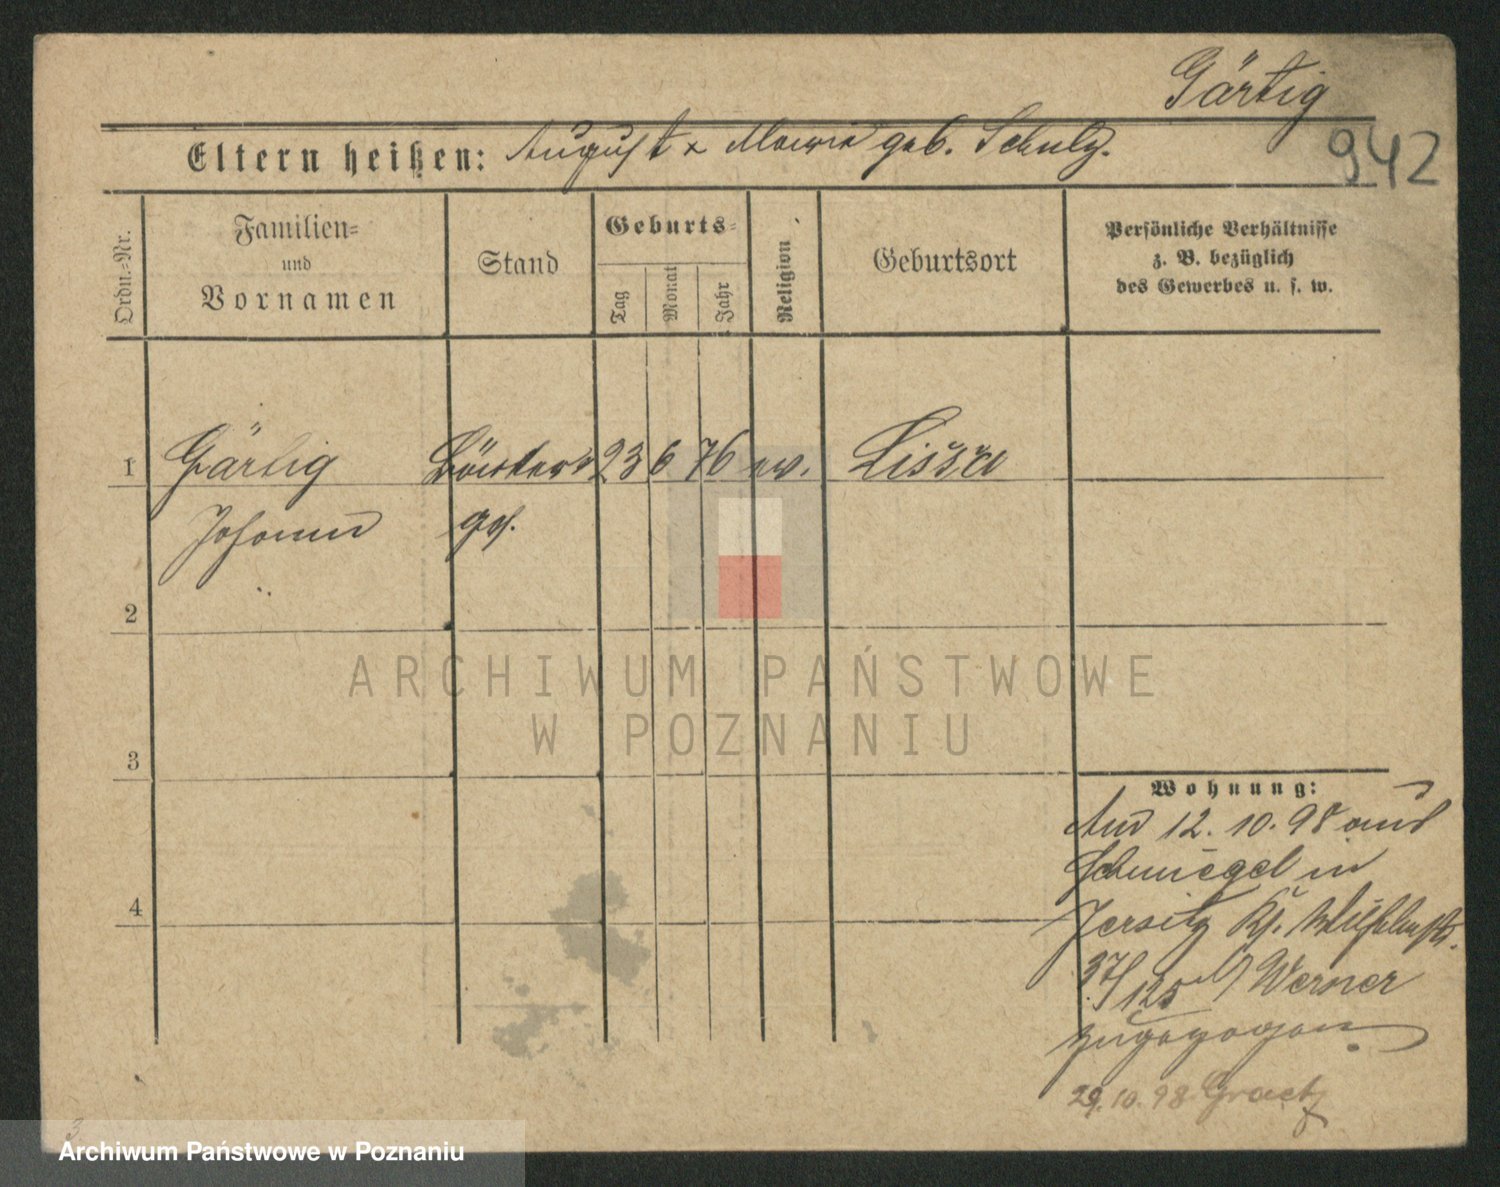 Gärtig
942
Eltern heißen: August & Marie geb. Schulz.
Ordn.=Nr.
Familien=
und
Vornamen
Stand
Geburts=
Tag
Monat
Jahr
Religion
Geburtsort
Persönliche Verhältnisse
z. B. bezüglich
des Gewerbes u. s. w.
1 Gärtig 23 6 76 ev. Lissa
Johann
2
3
4
Wohnung:
Am 12. 10. 98 aus
Schmiegel in
Jersitz Ks. Wilhelmstr.
37/125 b/ Werner
zugezogen.
29. 10. 98. Graetz
3
ARCHIWUM PAŃSTWOWE
W POZNANIU
Archiwum Państwowe w Poznaniu